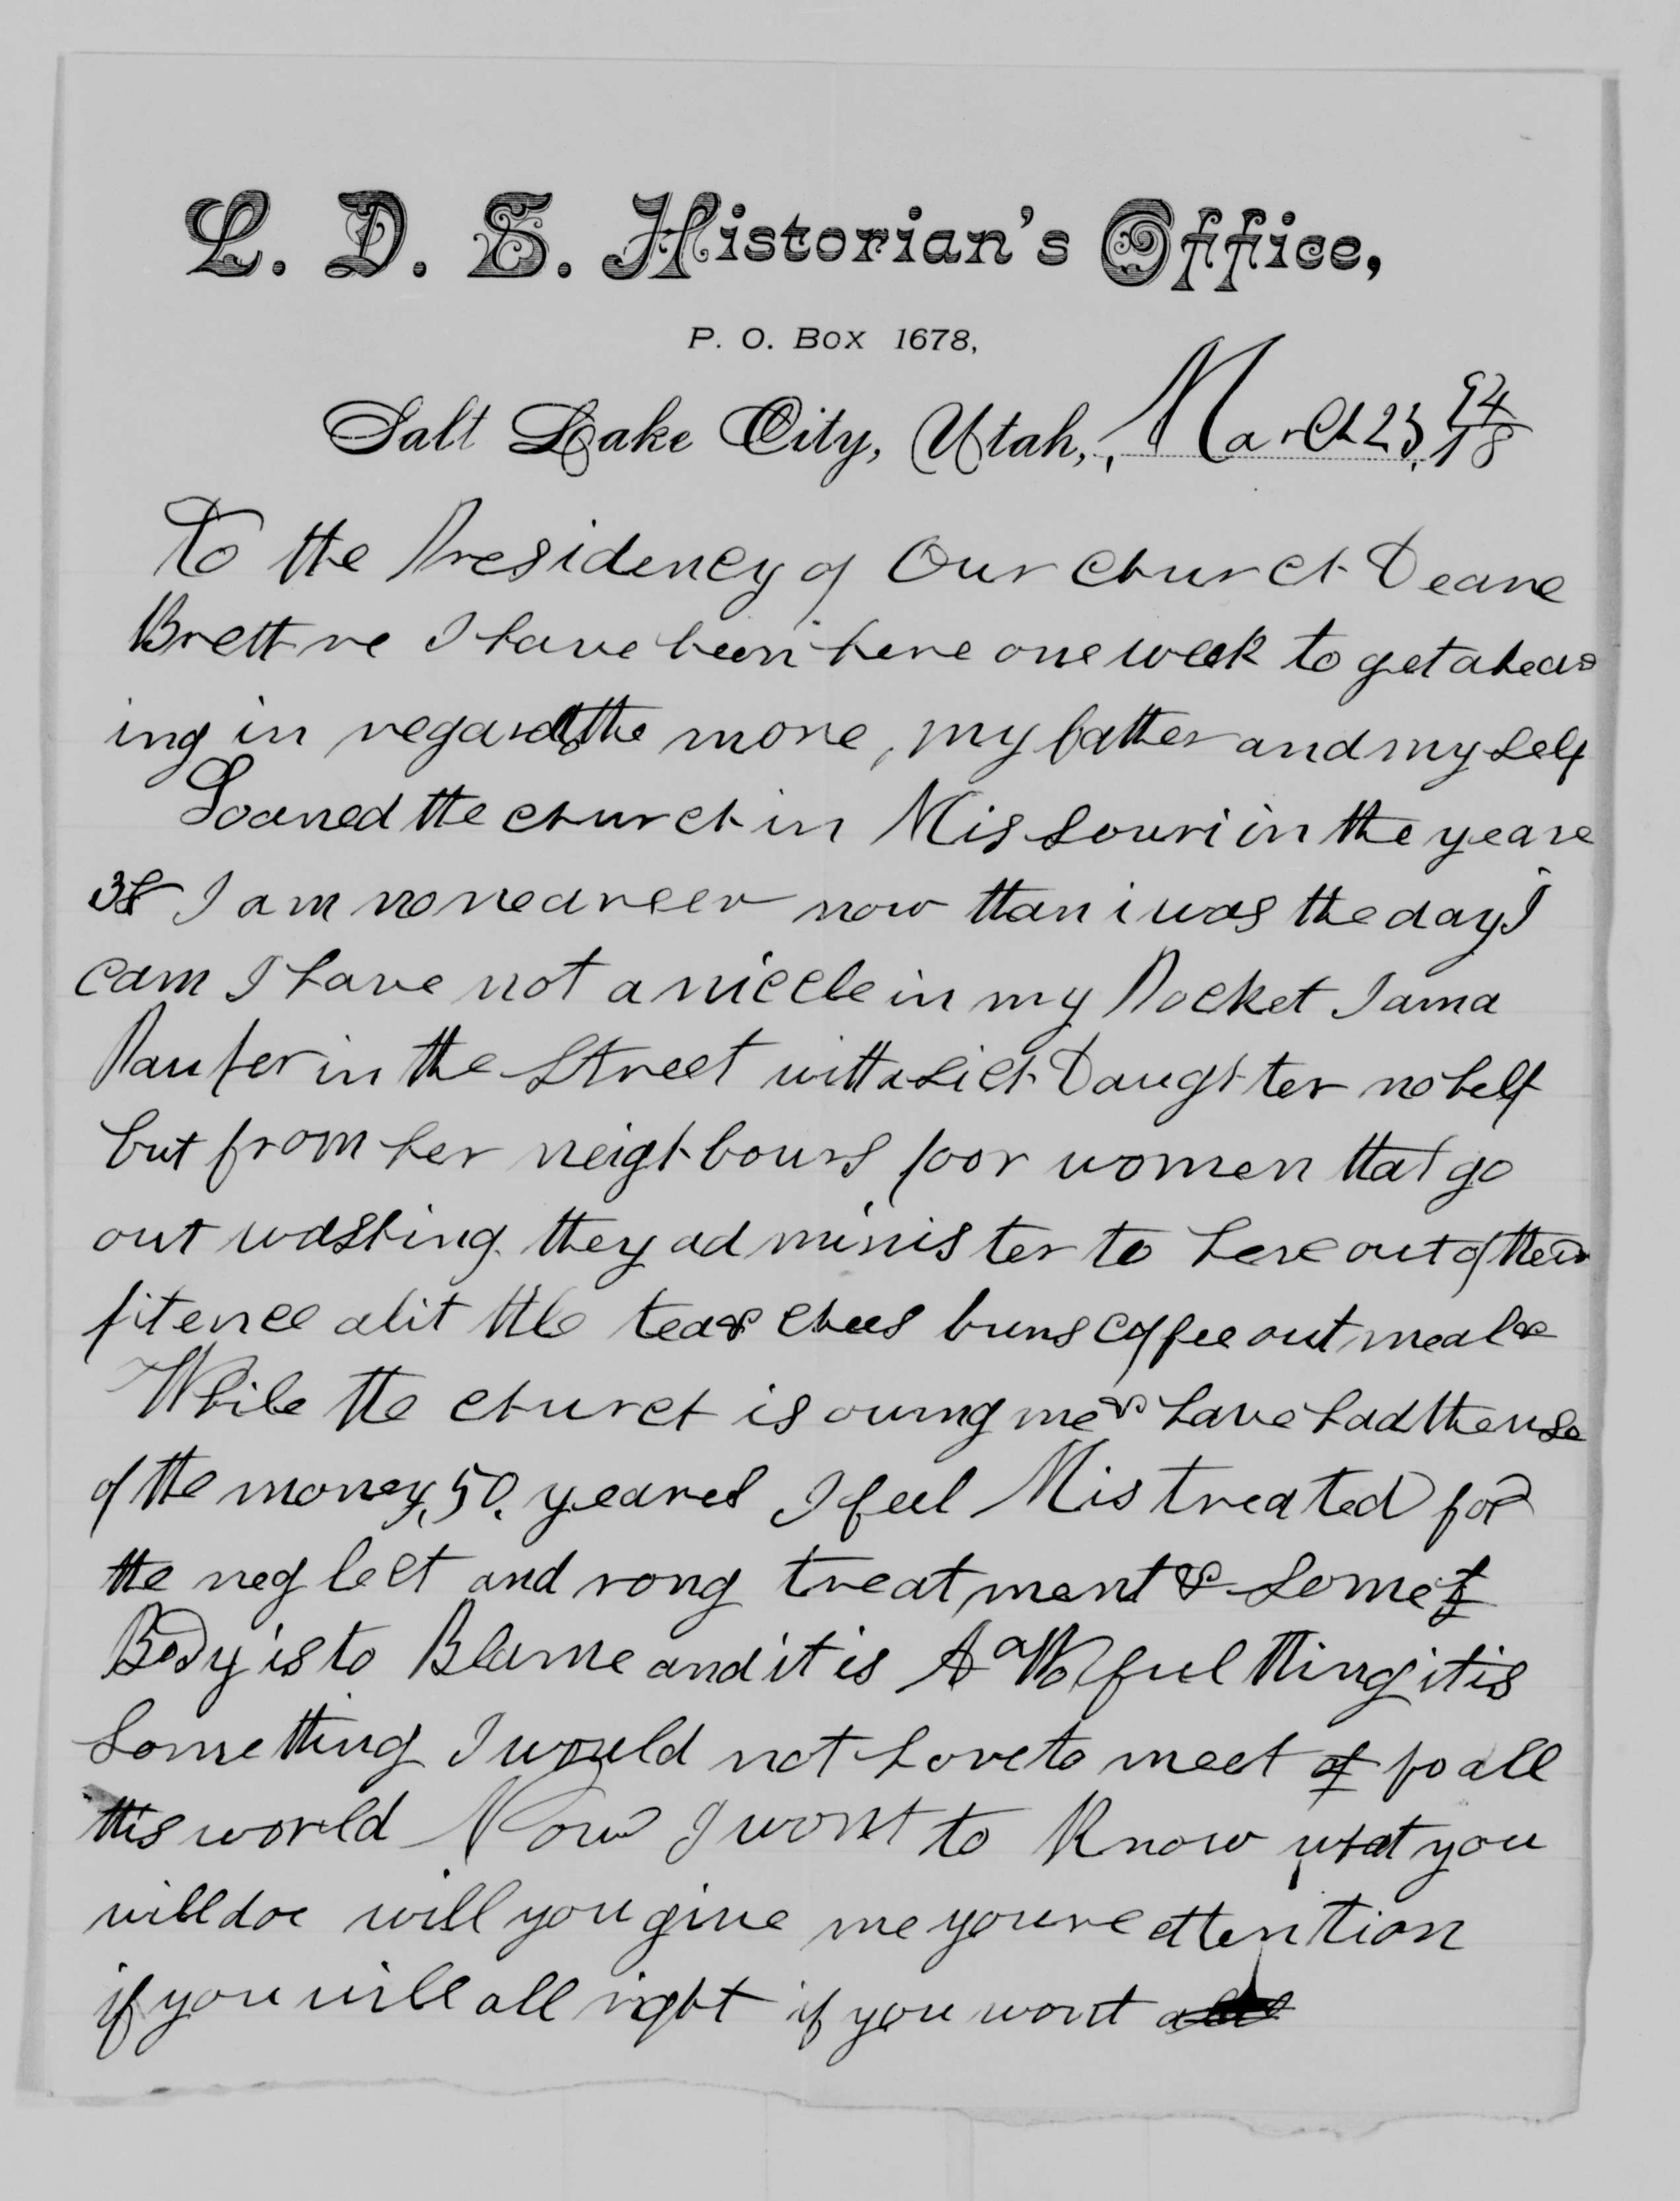 L. D. S. Historian's Office,
P. O. Box 1678,
Salt Lake City, Utah, March 23, 94/18
To the Presidency of Our church Deare
Brethre I have been here one week to get a hear
ing in regard the mone, my father and my self
Loaned the church in Missouri in the yeare
38 I am no neareer now than i was the day I
cam I have not a niccle in my Pocket I am a
Pauper in the Street with a sick Daughter no help
but from her neighbours poor women that go
out washing they administer to here out of their
pitence a litttle tea & chees buns coffee out meal &
While the church is ouing me & have had the use
of the money, 50. yeares I feel Mistreated for
the neglect and rong treatment & some
Body is to Blame and it is A awful thing it is
Something I would not hove to meet of fo all
this world Now I wont to Know what you
will doe will you give me youre attention
if you will all right if you wont